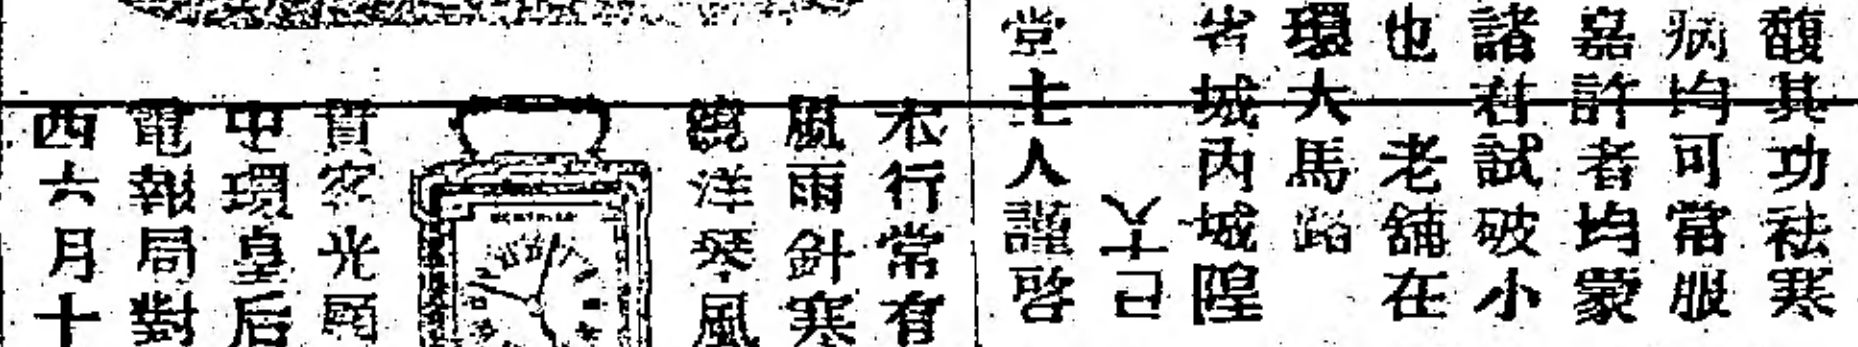 馥其功祛寒
病均可常服
嘉許者均蒙
諸君試破小
也　老舖在
環大馬路
省城內城隍
堂主人謹啓
本行常有
風雨針寒
鏡洋琴風
貴客光顧
中環皇后
電報局對
西六月十